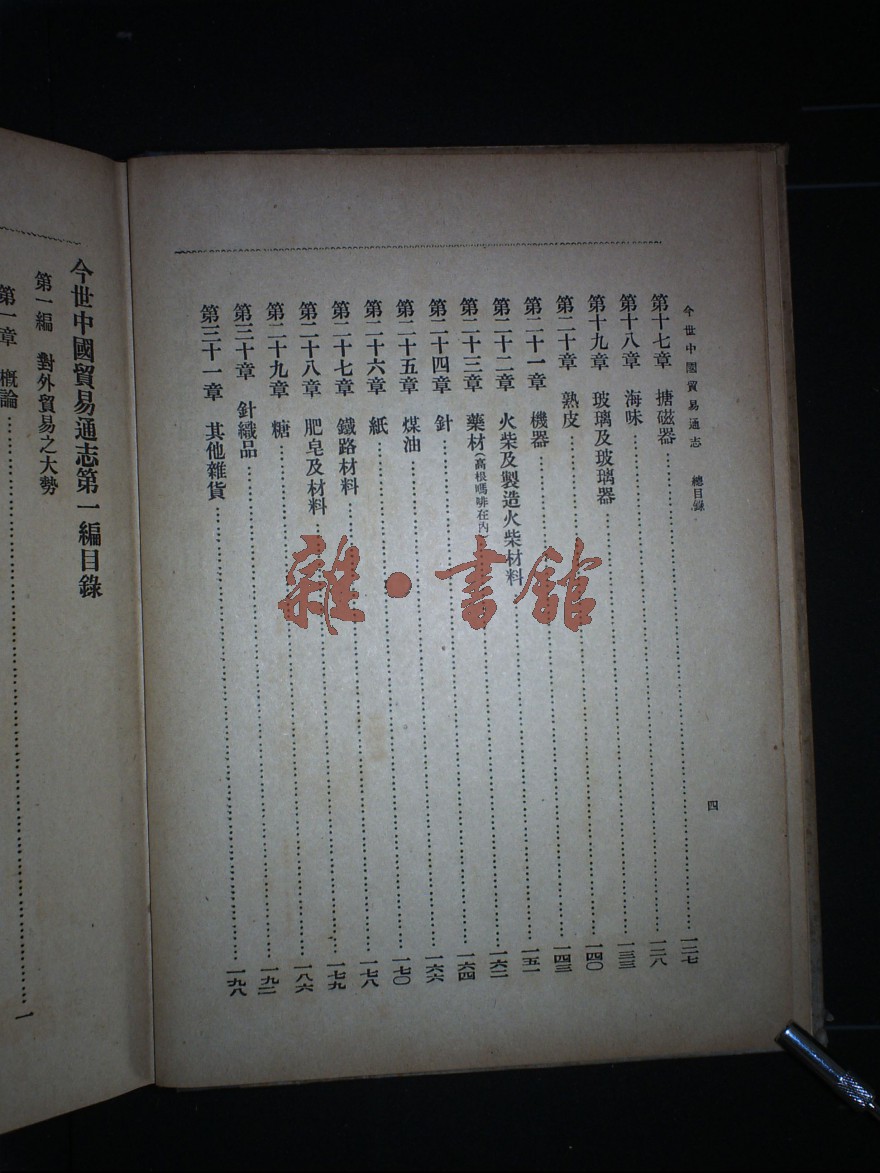 今世中國貿易通志 總目錄
四
第十七章 搪磁器 一二七
第十八章 海味 一二八
第十九章 玻璃及玻璃器 一三三
第二十章 熟皮 一四〇
第二十一章 機器 一四三
第二十二章 火柴及製造火柴材料 一五一
第二十三章 藥材(高根嗎啡在內) 一六二
第二十四章 針 一六四
第二十五章 煤油 一六六
第二十六章 紙 一七〇
第二十七章 鐵路材料 一七八
第二十八章 肥皂及材料 一七九
第二十九章 糖 一八六
第三十章 針織品 一九二
第三十一章 其他雜貨 一九八
今世中國貿易通志第一編目錄
第一編 對外貿易之大勢
第一章 概論 一
雜·書館